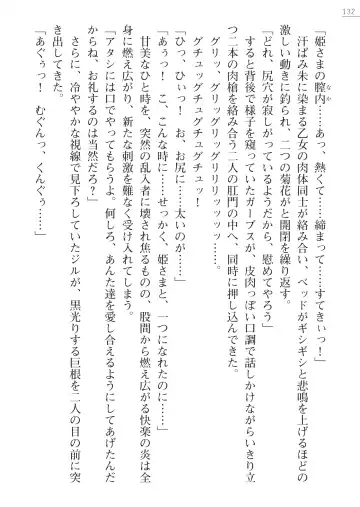 132
「姫さまの膣内……あっ、熱くて……締まって……すてきぃっ！」
汗ばみ朱に染まる乙女の肉体同士が絡み合い、ベッドがギシギシと悲鳴を上げるほどの
激しい動きに釣られ、二つの菊花がパクパクと開閉を繰り返す。
「どれ、尻穴が寂しがっているようだから、慰めてやろう」
すると背後で様子を窺っていたガーブスが、皮肉っぽい口調で話しかけながらいきり立
つ二本の肉槍を絡み合う二人の肛門の中へ、同時に押し込んできた。
グリッ、グリッグリッグリリリッッッッ……！
グチュッグチュグチュグチュッ！
「ひっ、ひぃっ！　お、お尻に……太いのが……」
「あぁっ！　こ、こんな時に……せっかく、姫さまと、一つになれたのに……」
甘美なひと時を、突然の乱入者に壊され焦るものの、股間から燃え広がる快楽の炎は全
身に燃え広がり、新たな刺激を難なく受け入れてしまう。
「アタシには口でやってもらうよ。何しろ、あんた達を愛し合えるようにしてあげたんだ
からね、お礼するのは当然だろ？」
さらに、冷ややかな視線で見下ろしていたジルが、黒光りする巨根を二人の目の前に突
き出してきた。
「あぐぅっ！　むぐんっ、くんぐぅ……」